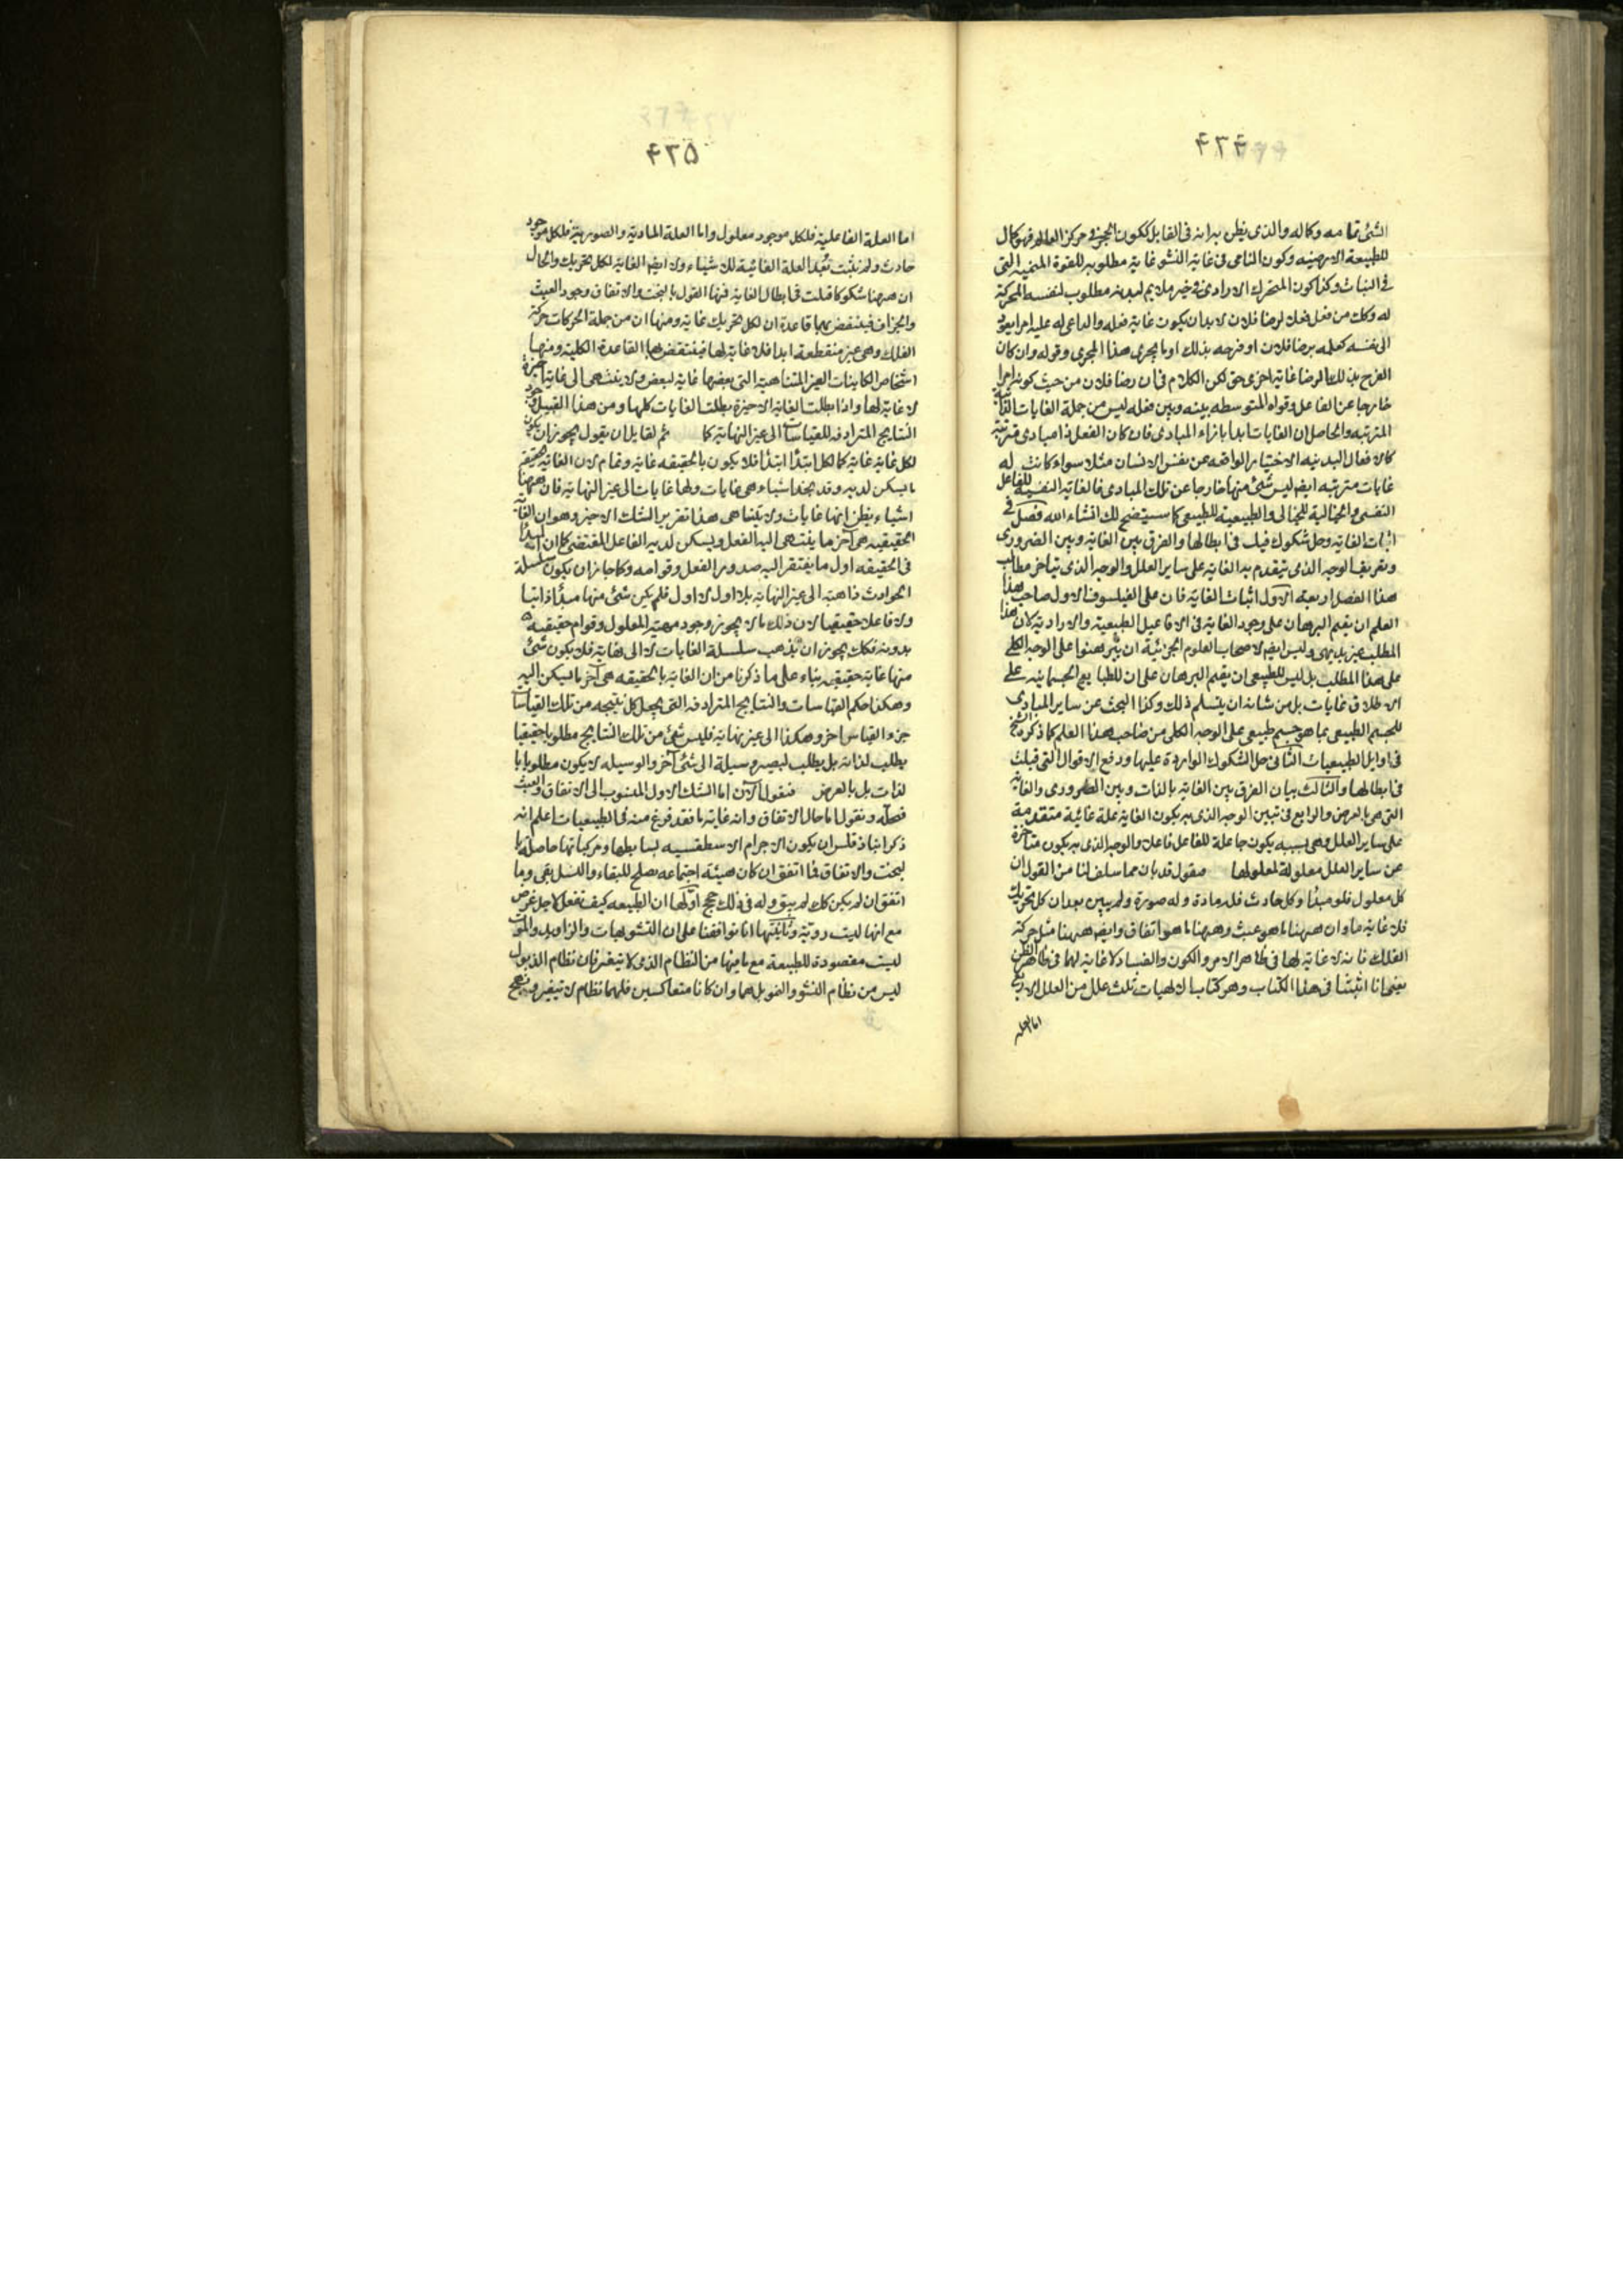 ۴۳۴
الشئ تمامه وكماله والذى يظن به انه فى القابل ككون الحجر فى مركز العالم فهو كمال
للطبيعة الارضيه وكون النامى فى غاية النشو غاية مطلوبه للقوة المنميه التى
فى النبات وكذا كون المتحرك الارادى فى خير ملايم لبدنه مطلوب لنفسه المحركة
له وكك من فعل فعلا لرضا فلان لا بد ان يكون غاية فعله والداعى له عليه امرا يعود
الى نفسه كعلمه برضا فلان او فرحه بذلك او ما يجرى هذا المجرى وقوله وان كان
الفرح بذلك الرضا غاية اخرى حق لكن الكلام فى ان رضا فلان من حيث كونه امرا
خارجا عن الفاعل وقواه المتوسطه بينه وبين فعله ليس من جملة الغايات الذاتية
المترتبه والحاصل ان الغايات ابدا بازاء المبادى فان كان الفعل ذا مبادى مترتبة
كالافعال البدنيه الاختيار الواقعه عن نفس الانسان مثلا سواء كانت له
غايات مترتبه ايضا ليس شئ منها خارجا عن تلك المبادى فالغاية النفسية للفاعل
النفسى والخيالية للخيالى والطبيعية للطبيعى كما سيتضح لك انشاء الله فصل فى
اثبات الغاية وحل شكوك قيلت فى ابطالها والفرق بين الغاية وبين الضرورى
وتعريف الوجه الذى يتقدم به الغاية على ساير العلل والوجه الذى يتاخر مطالب
هذا الفصل اربعة الاول اثبات الغاية فان على الفيلسوف الاول صاحب هذا
العلم ان يقيم البرهان على وجود الغاية فى الافاعيل الطبيعية والارادية لان هذا
المطلب غير بديهى وليس ايضا لاصحاب العلوم الجزئية ان يبرهنوا على الوجه الكلى
على هذا المطلب بل ليس للطبيعى ان يقيم البرهان على ان للطبايع الجسمانيه على
الاطلاق غايات بل من شانه ان يتسلم ذلك وكذا البحث عن ساير المبادى
للجسم الطبيعى بما هو جسم طبيعى على الوجه الكلى من صاحب هذا العلم كما ذكره الشيخ
فى اوايل الطبيعيات الثانى حل الشكوك الواردة عليها ودفع الاقوال التى قيلت
فى ابطالها والثالث بيان الفرق بين الغاية بالذات وبين الضرورى والغاية
التى هى بالعرض والرابع فى تبيين الوجه الذى به يكون الغاية علة غائية متقدمة
على ساير العلل وهى بسببه يكون جاعلة للفاعل فاعلا والوجه الذى به يكون متاخرة
عن ساير العلل معلولة لمعلولها فنقول قد بان مما سلف لنا من القول ان
كل معلول فله مبدأ وكل حادث فله مادة وله صورة ولم يبين بعد ان كل تحريك
فله غاية ما وان ههنا ما هو عبث وههنا ما هو اتفاق وايضا ههنا مثل حركة
الفلك فانه لا غاية لها فى ظاهر الامر والكون والفساد لا غاية لهما فى ظاهر الظن
يعنى انا اثبتنا فى هذا الكتاب وهو كتاب الالهيات ثلث علل من العلل الاربع
اما العلة
۴۳۵
اما العلة الفاعلية فلكل موجود معلول واما العلة المادية والصورية فلكل موجود
حادث ولم نثبت بعد العلة الغائية للاشياء ولا ايضا الغاية لكل تحريك والحال
ان ههنا شكوكا قيلت فى ابطال الغاية فمنها القول بالبخت والاتفاق وجود العبث
والجزاف فينتقض بها قاعدة ان لكل تحريك غاية ومنها ان من جملة الحركات حركة
الفلك وهى غير منقطعة ابدا فلا غاية لها فينتقض بها القاعدة الكلية ومنها
اشخاص الكاينات الغير المتناهية التى بعضها غاية لبعض ولا ينتهى الى غاية اخيرة
لا غاية لها واذا بطلت الغاية الاخيرة بطلت الغايات كلها ومن هذا القبيل وجود
النتايج المترادفه للقياسات الى غير النهاية كما ثم لقايل ان يقول يجوز ان يكون
لكل غاية غاية كما لكل ابتدأ ابتدأ فلا يكون بالحقيقه غاية وتمام لان الغاية الحقيقه
ما يسكن لديه وقد نجد اشياء هى غايات ولها غايات الى غير النهاية فان ههنا
اشياء يظن انها غايات ولا يتناهى هذا تقرير الشك الاخير وهو ان الغاية
الحقيقيه هى آخر ما ينتهى اليه الفعل ويسكن لديه الفاعل المقتضى كما ان المبدأ
فى الحقيقه اول ما يفتقر اليه صدور الفعل وقوامه وكما جاز ان يكون سلسلة
الحوادث ذاهبة الى غير النهاية بلا اول لاول فلم يكن شئ منها مبدأ ذاتيا
ولا فاعلا حقيقيا لان ذلك ما لا يجوز وجود مهية المعلول وقوام حقيقيه
بدونه فكك يجوز ان يذهب سلسلة الغايات لا الى نهاية فلا يكون شئ
منها غاية حقيقيه بناء على ما ذكرنا من ان الغاية بالحقيقه هى آخر ما يسكن اليه
وهكذا حكم القياسات والنتايج المترادفه التى يجعل كل نتيجه من تلك القياسات
جزءا لقياس اخر وهكذا الى غير نهاية فليس شئ من تلك النتايج مطلوبا حقيقيا
يطلب لذاته بل يطلب ليصير وسيلة الى شئ آخر والوسيله لا يكون مطلوبا با
لذات بل بالعرض فنقول الآن اما الشك الاول المنسوب الى الاتفاق والعبث
فنحله ونقول اما حال الاتفاق وانه غاية ما فقد فرغ منه فى الطبيعيات اعلم انه
ذكر انباذقلس ان يكون الاجرام الاسطقسيه بسايطها ومركباتها حاصلة با
لبخت والاتفاق فما اتفق ان كان هيئة اجتماعه يصلح للبقاء والنسل بقى وما
اتفق ان لم يكن كك لم يبق وله فى ذلك حجج اولها ان الطبيعه كيف تفعل لاجل غرض
مع انها ليست روية وثانيتها انا توافقنا على ان التشويهات والزوايد والموت
ليست مقصودة للطبيعة مع ما فيها من النظام الذى لا يتغير فان نظام الذبول
ليس من نظام النشو والنمو بل هما وان كانا متعاكسين فلهما نظام لا يتغير ونهج